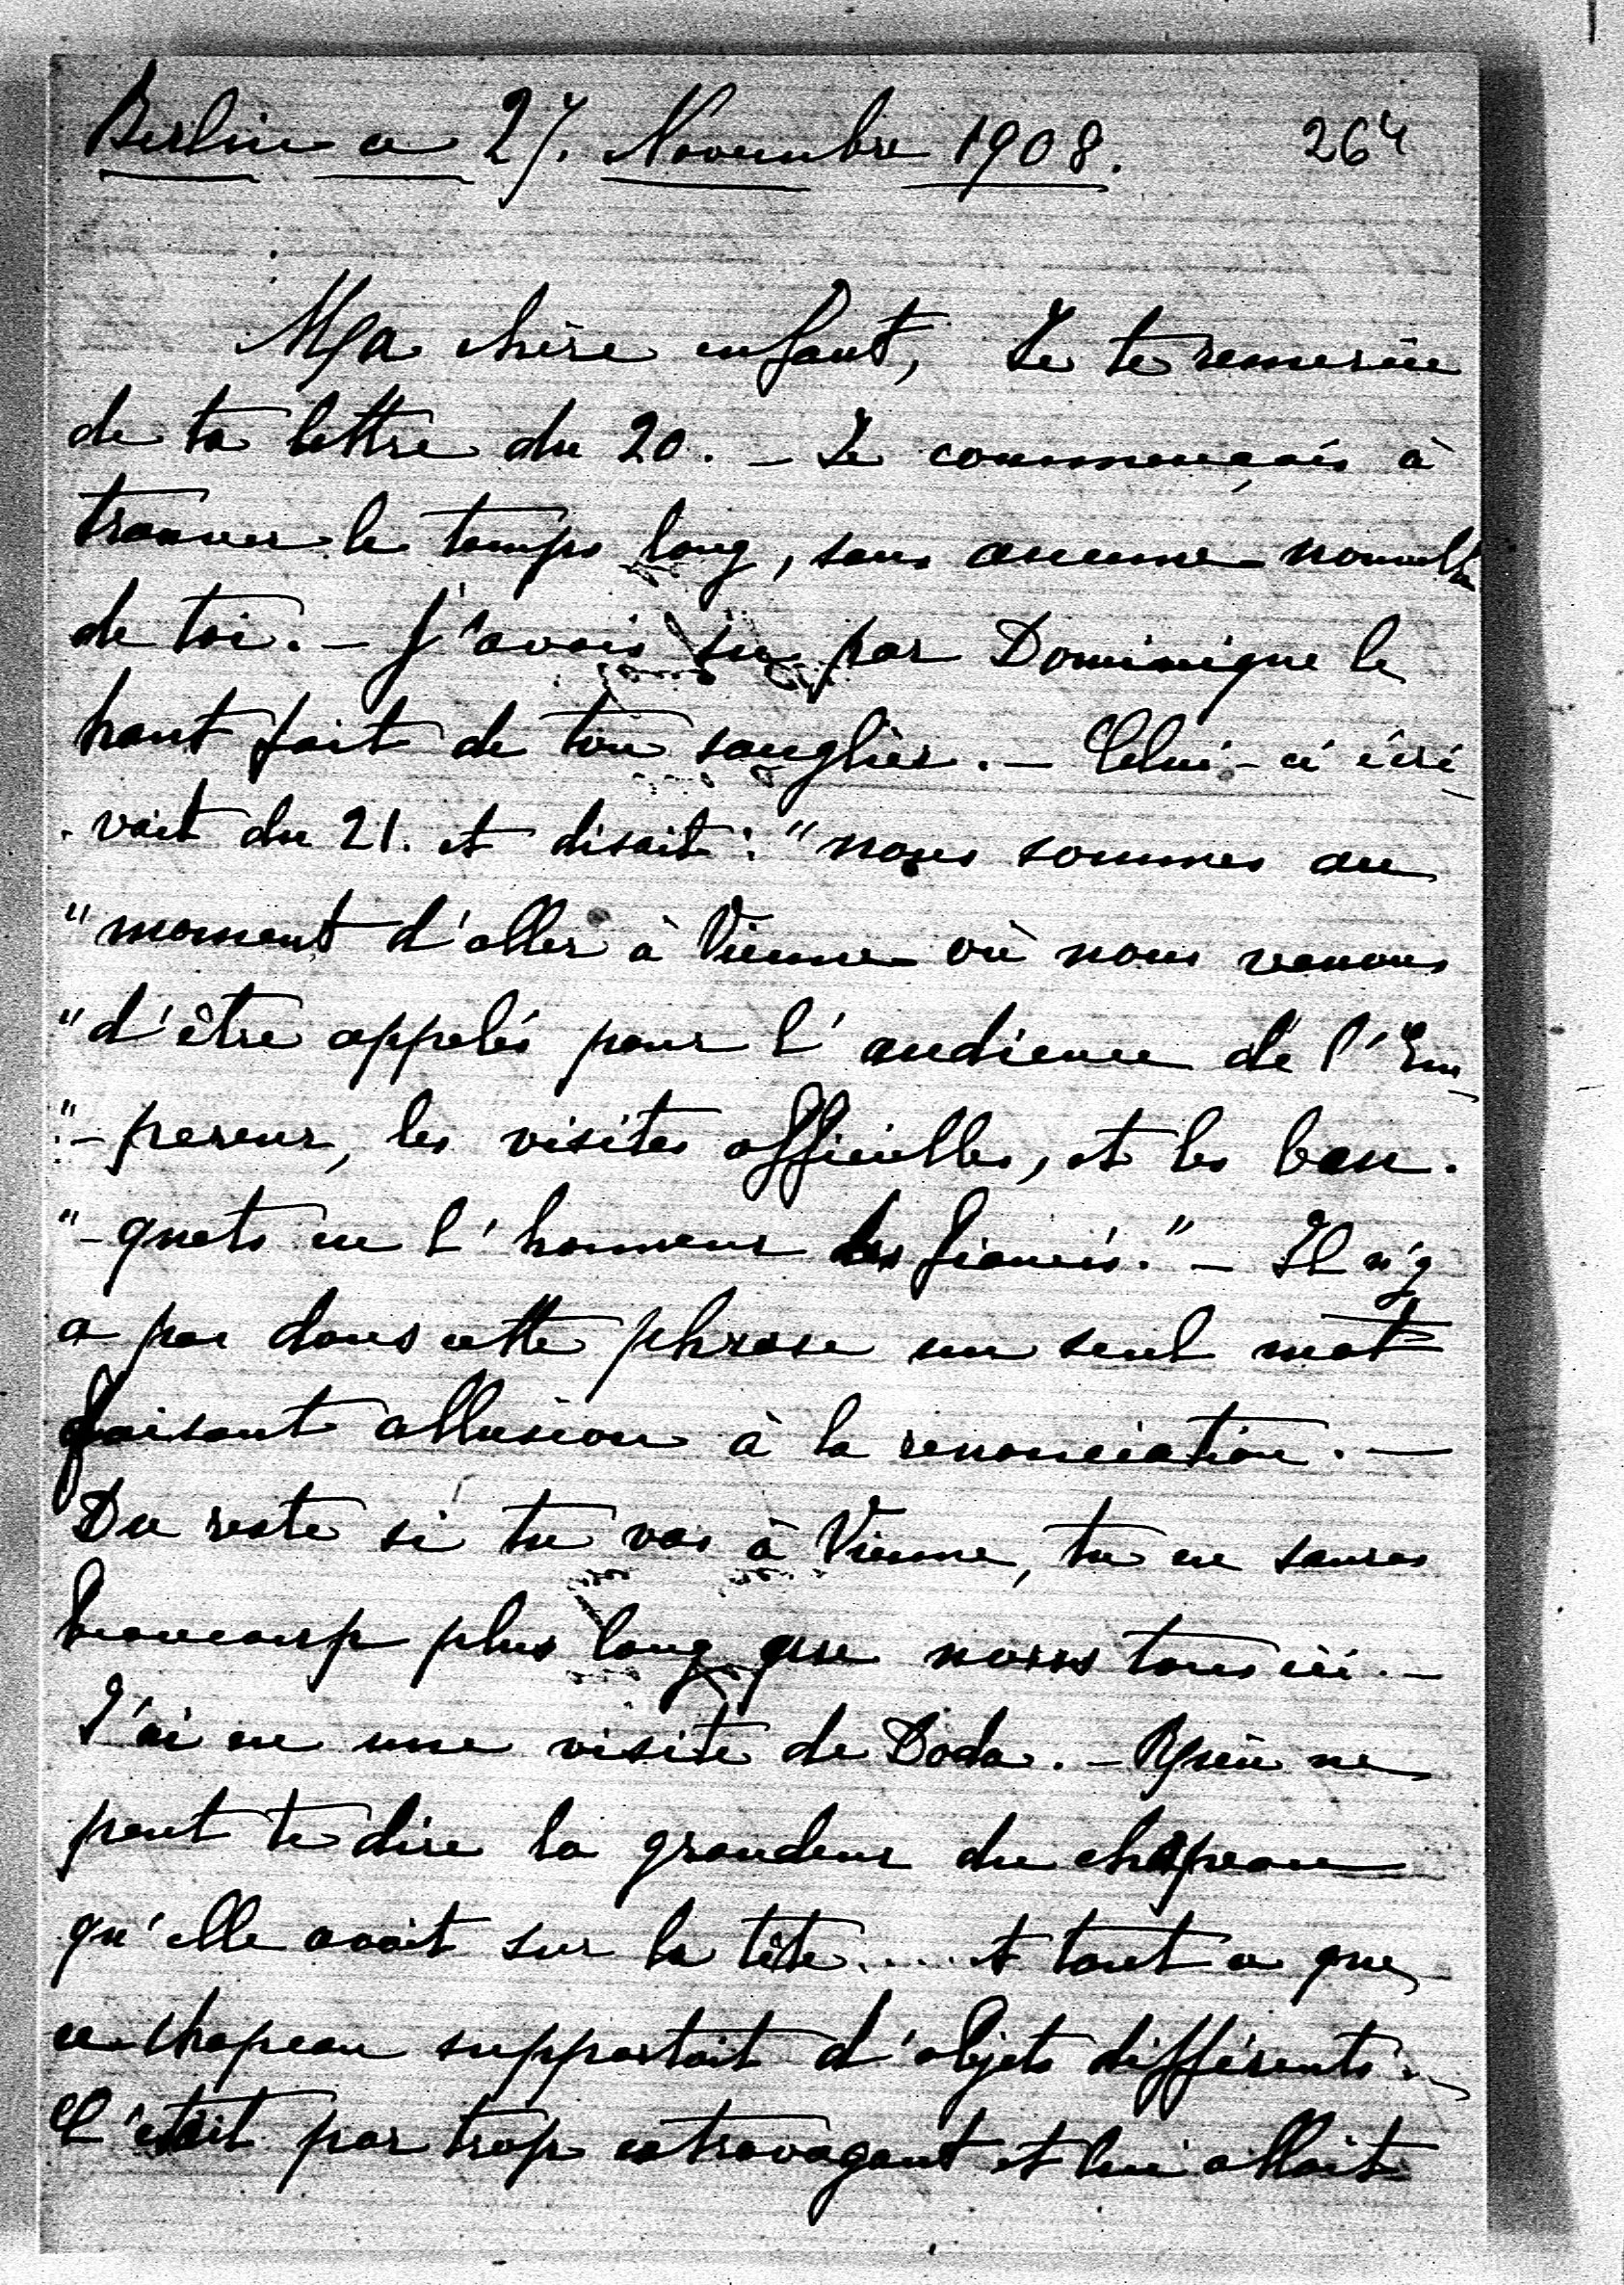 Berlin ce 27. Novembre 1908. 264
Ma chère enfant, Je te remercie
de ta lettre du 20. – Je commençais à
trouver le temps long, sans aucune nouvelle
de toi. – J'avais su par Dominique le
haut fait de ton sanglier. – Celui-ci écri
- vait du 21. et disait: "nous sommes au
"moment d'aller à Vienne où nous venons
"d'être appelés pour l'audience de l'Em
"- pereur, les visites officielles, et les ban-
"- quets en l'honneur des fiancés." – Il n'y
a pas dans cette phrase un seul mot
faisant allusion à la renonciation. –
Du reste si tu vas à Vienne, tu en sauras
beaucoup plus long que nous tous ici. –
J'ai eu une visite de Doda. – Rien ne
peut te dire la grandeur du chapeau
qu'elle avait sur la tête.... et tout ce que
ce chapeau supportait d'objets différents. –
C'était par trop extravagant et lui allait